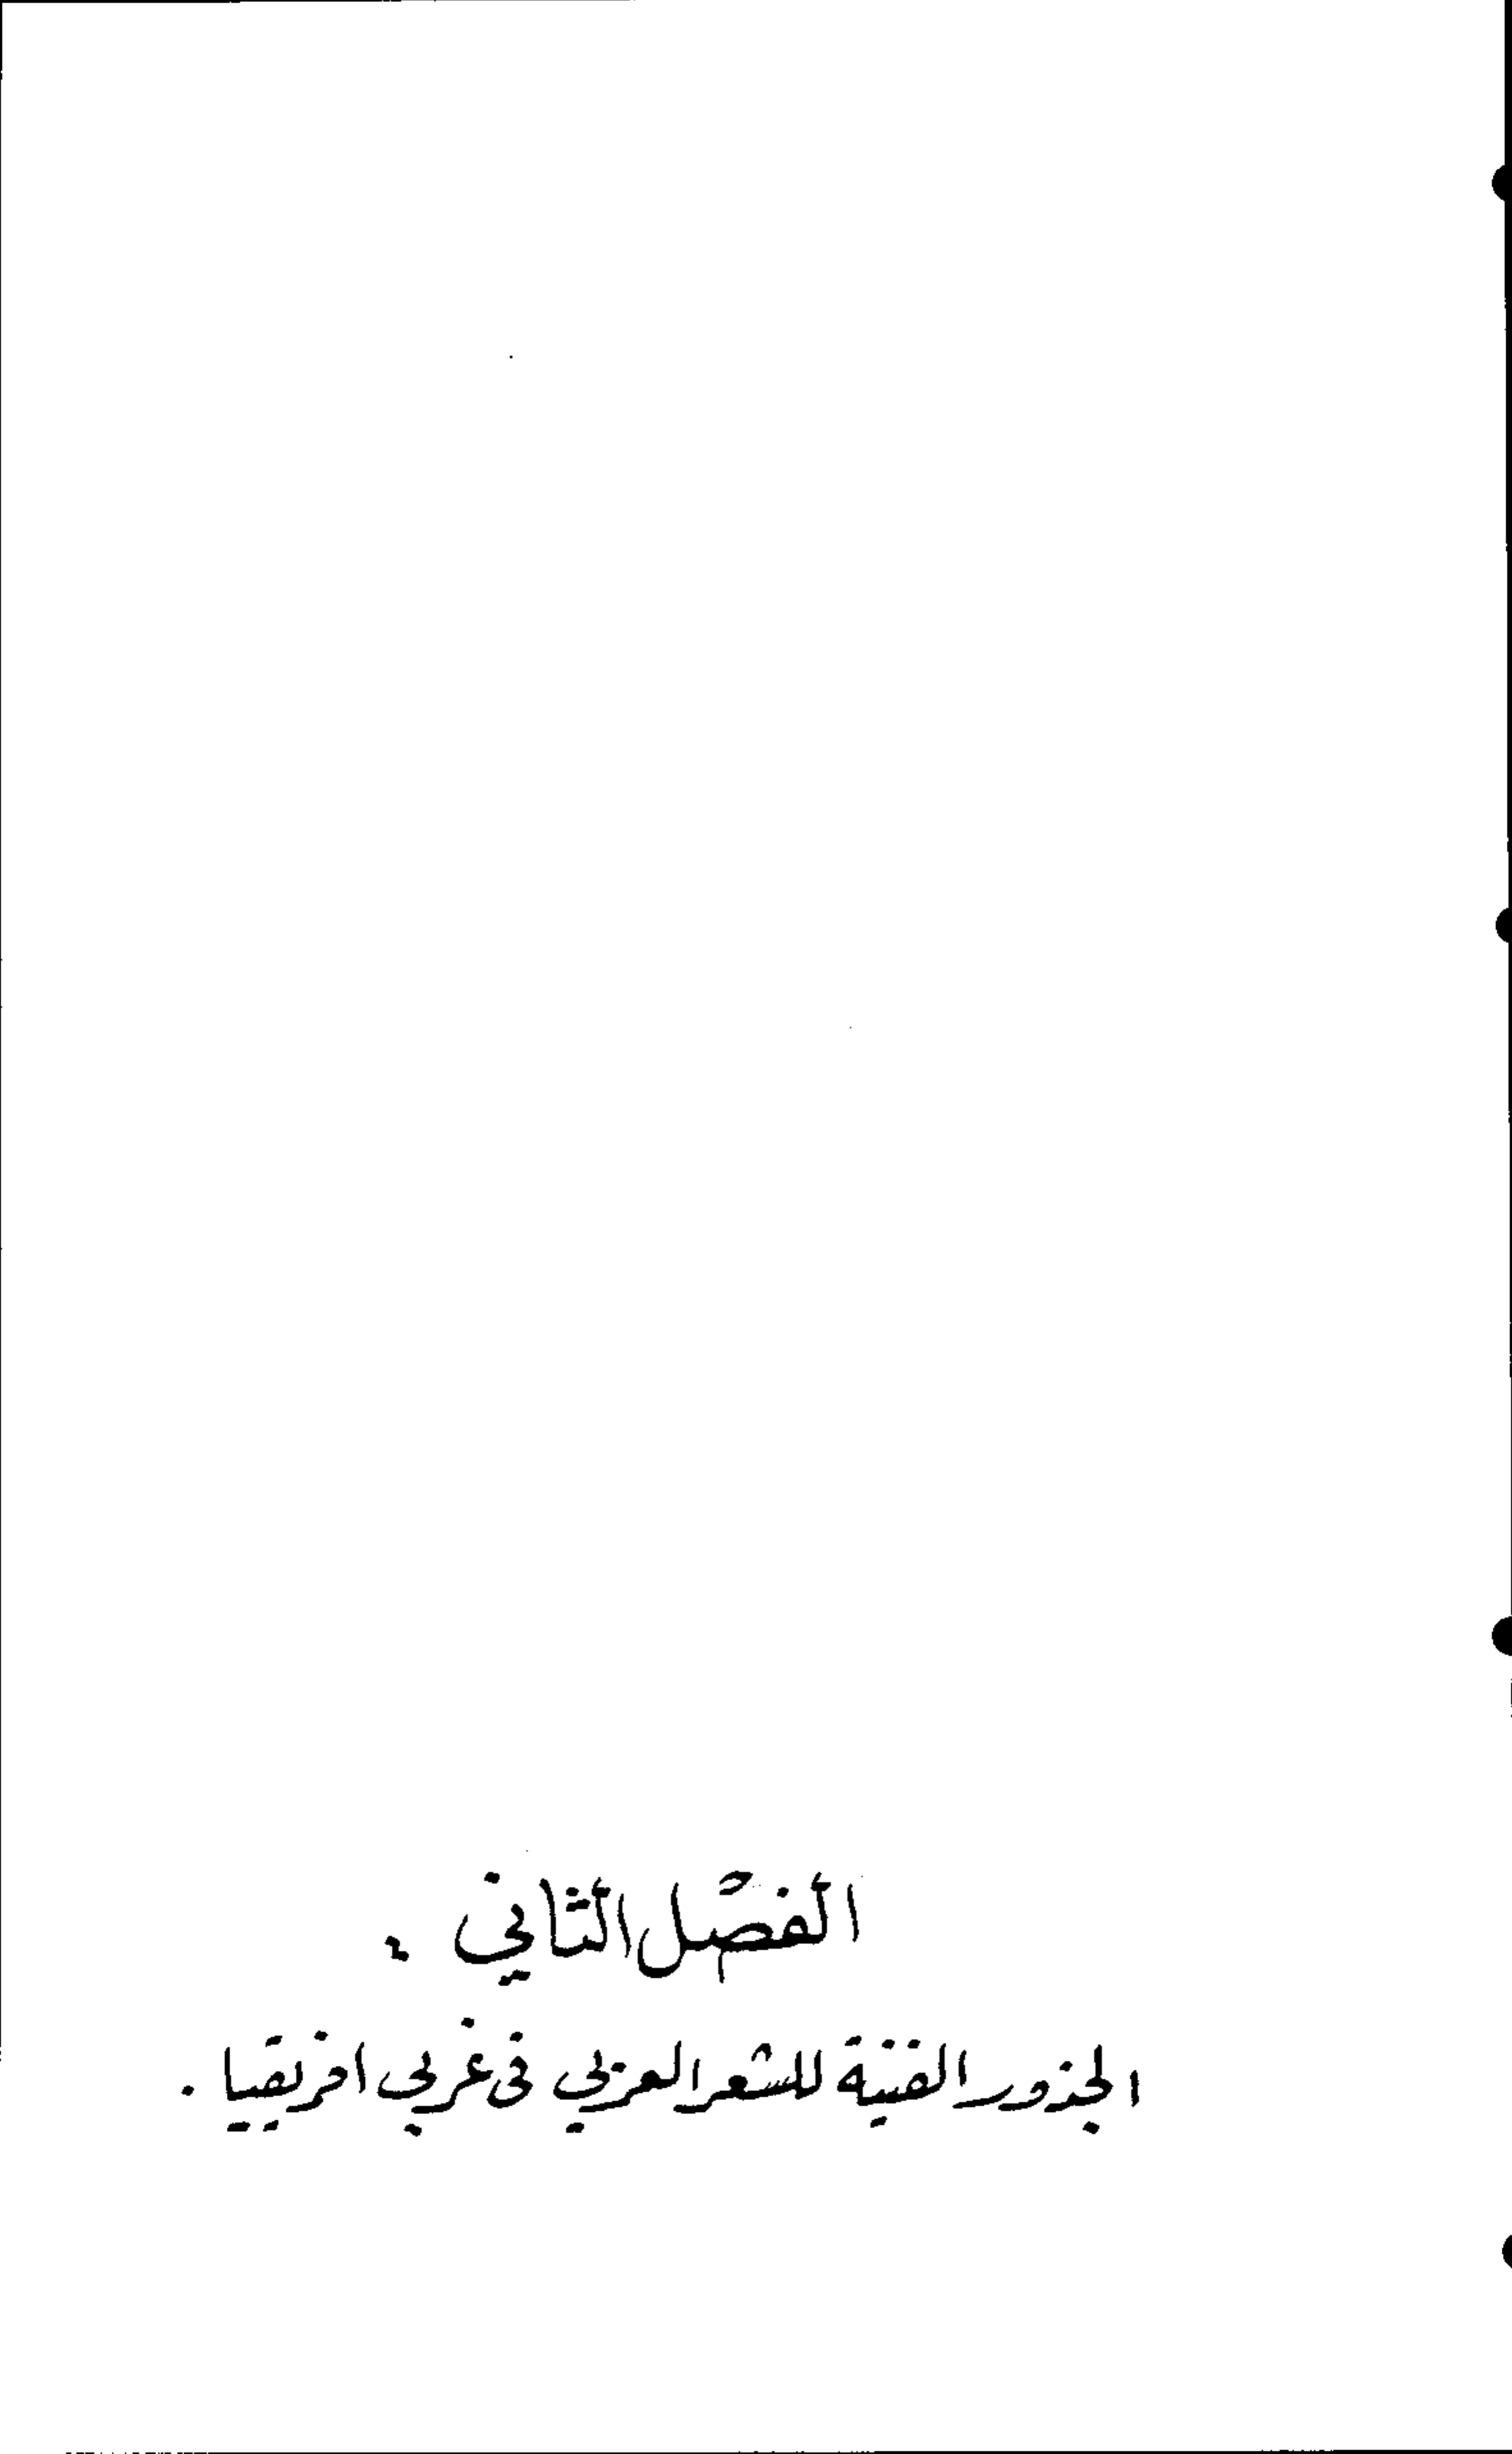 الفصل الثاني :
الجذور الفنية للشعر العربي في غربي افريقيا .